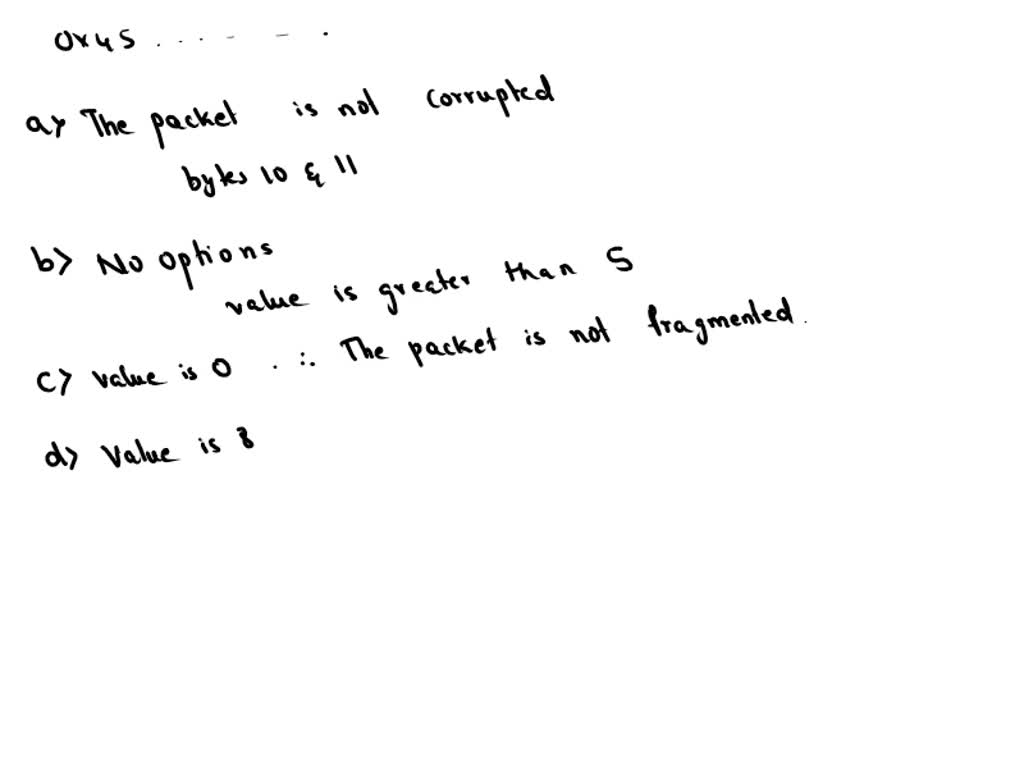 0x45 . . . - - .
a> The packet is not corrupted
bytes 10 & 11
b> No options
value is greater than 5
c> value is 0 . ∴ The packet is not fragmented.
d> Value is 8